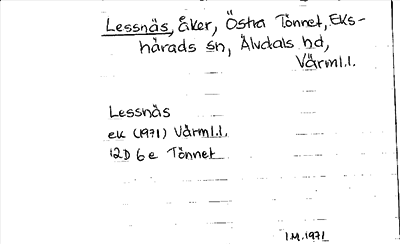 Lessnäs, åker, Östra Tönnet, Eks-
härads sn, Älvdals hd,
Värml.l.
Lessnäs
ek (1971) Värml.l.
12D 6 e Tönnet
I.M.1971